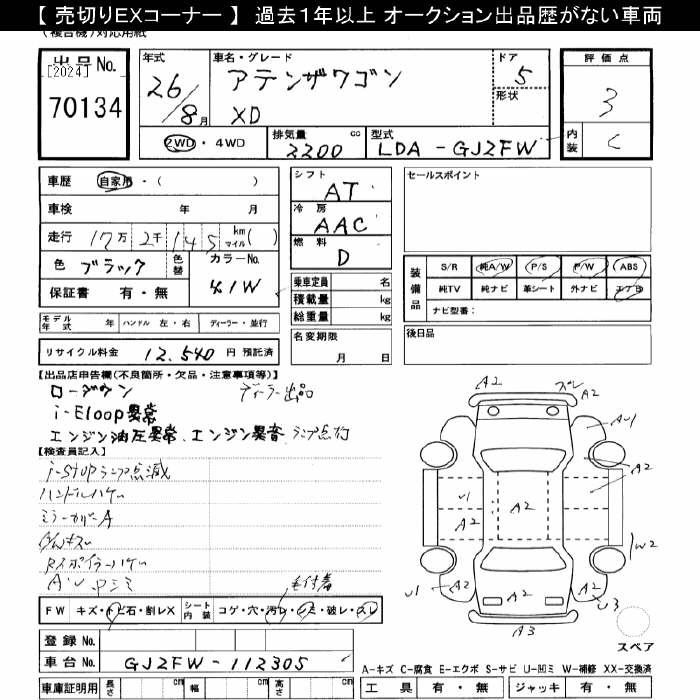 【 売切りEXコーナー 】 過去１年以上 オークション出品歴がない車両
(複合機)対応用紙
出品No.
[2024]
70134
年式
26/8月
車名・グレード
アテンザワゴン
XD
ドア
5
形状
評価点
3
内装
C
2WD・4WD
排気量
2200 cc
型式
LDA-GJ2FW
車歴 自家用・( )
車検 年 月
走行 17万2千145 km マイル( )
色 ブラック 色替 カラーNo. 41W
保証書 有・無
モデル年式 年 ハンドル 左・右 ディーラー・並行
リサイクル料金 12,540 円 預託済
シフト
AT
冷房
AAC
燃料
D
乗車定員 名
積載量 kg
総重量 kg
名変期限
月 日
セールスポイント
装備品
S/R 純A/W P/S P/W ABS
純TV 純ナビ 革シート 外ナビ エアB
ナビ型番:
後日品
【出品店申告欄(不良箇所・欠品・注意事項等)】
ローダウン ディーラー出品
i-Eloop異常
エンジン油圧異常、エンジン異音 ランプ点灯
【検査員記入】
i-stopランプ点滅
ハンドルハゲ
ミラーカバーA
ダンキズ
Rスポイラーハゲ
毛付着
FW キズ・トビ石・割レX シート内装 コゲ・穴・汚レ・シミ・破レ・スレ
登録No.
車台No. GJ2FW-112305
車庫証明用 長さ cm 幅 cm 高さ cm
A2 ズレ A2
AU1
A2
U1
A2
A2
A2
W2
U1 A2
A2
A2
U3
A3
スペア
A-キズ C-腐食 E-エクボ S-サビ U-凹ミ W-補修 XX-交換済
工具 有・無 ジャッキ 有・無